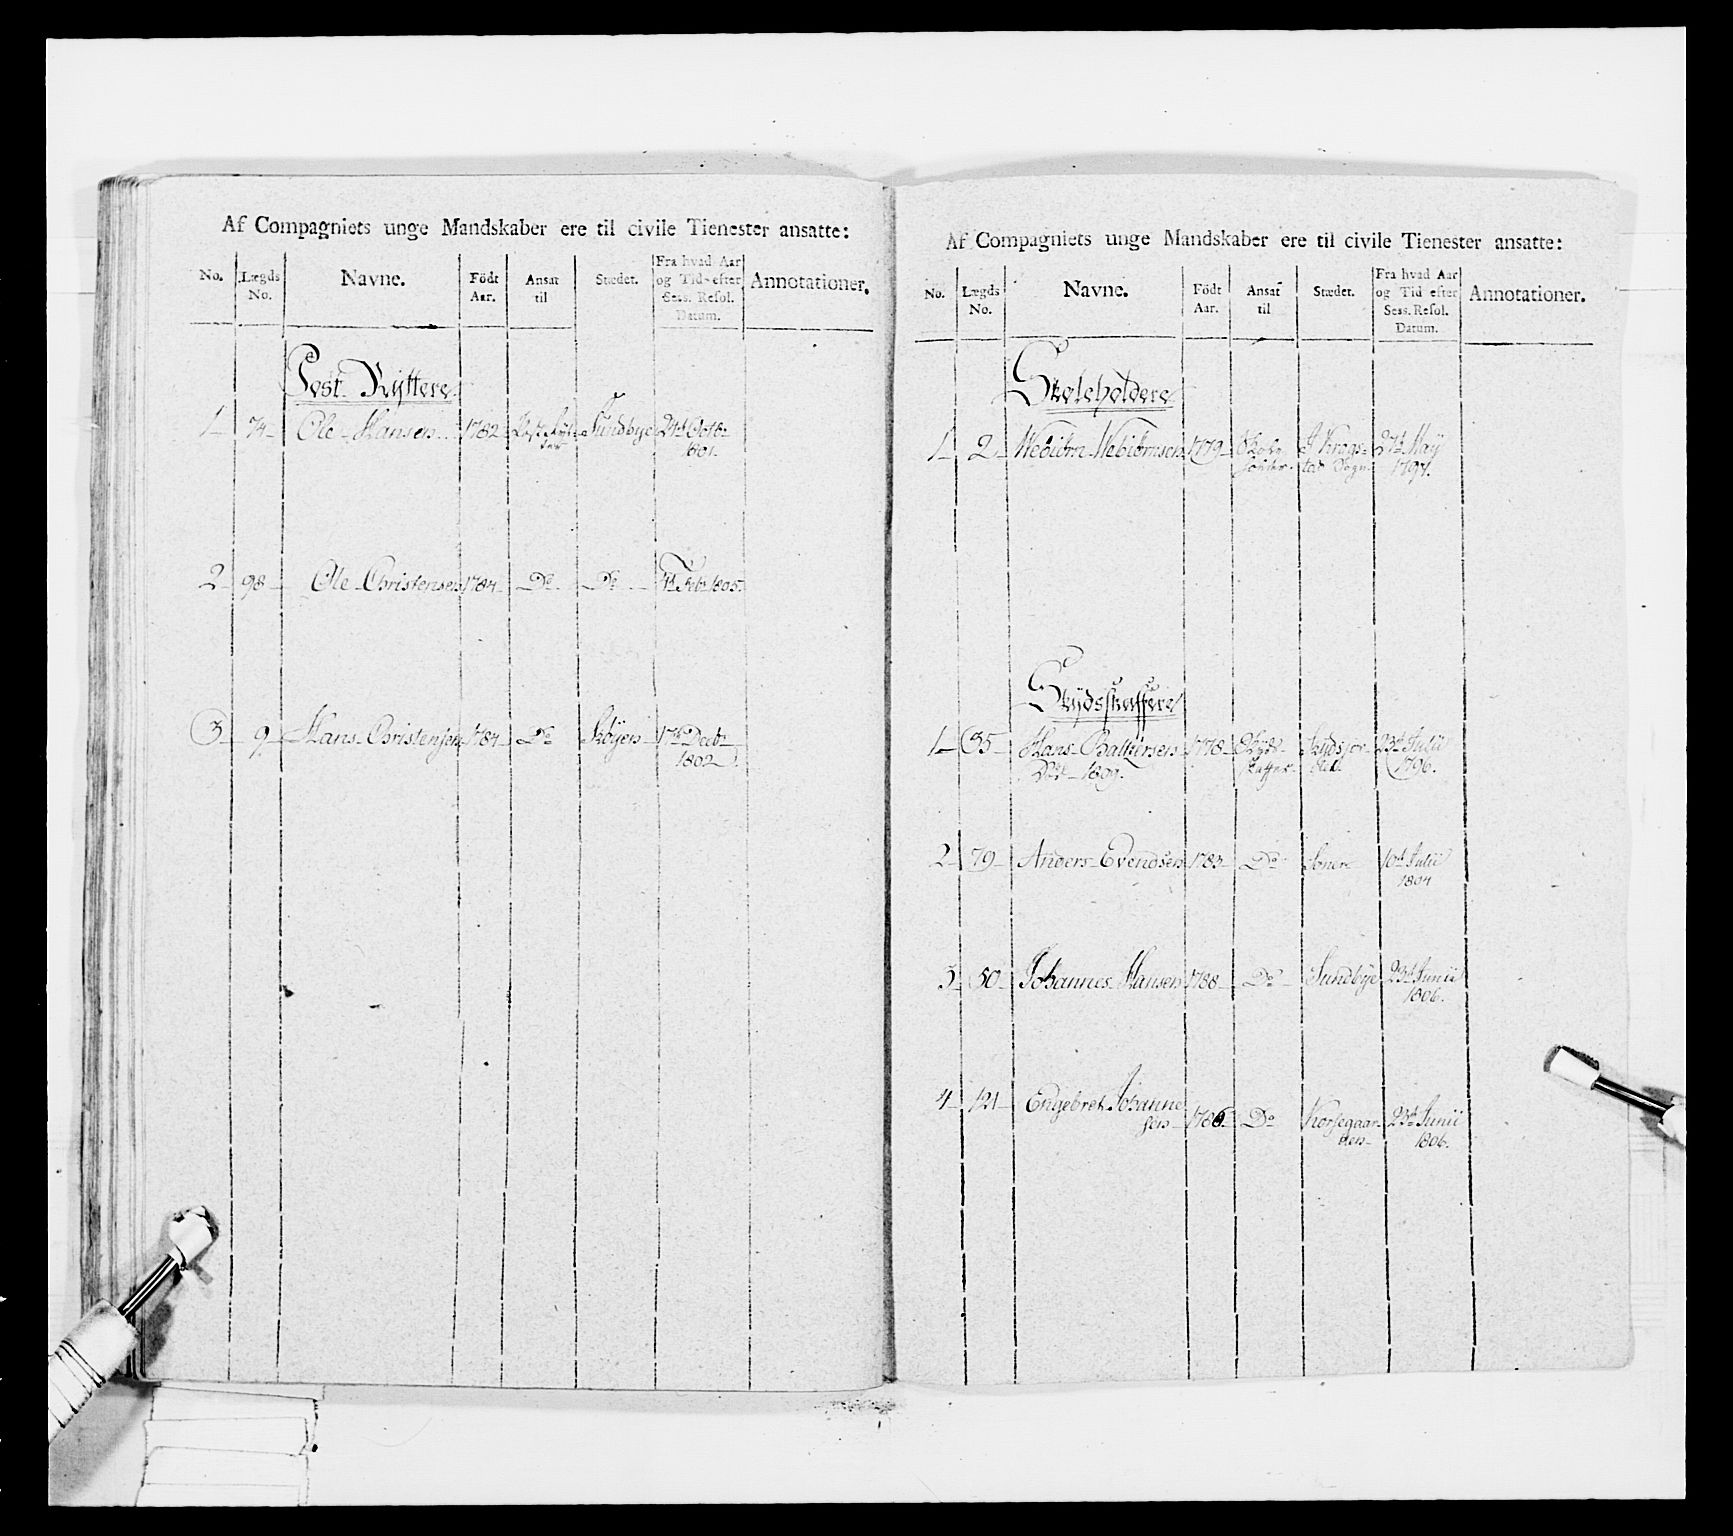 Af Compagniets unge Mandskaber ere til civile Tienester ansatte:
No. Lægds No. Navne. Födt Aar. Ansat til Stædet. Fra hvad Aar og Tid efter Sess. Resol. Datum. Annotationer.
Post Ryttere
1 74 Ole Hansen 1782 Sundbye 24d Octbr 1801.
2 98 Ole Christensen 1784 Do Do 4d Feb 1805.
3 9 Hans Christensen 1784 Do Sköyen 17d Decbr 1802.
Af Compagniets unge Mandskaber ere til civile Tienester ansatte:
No. Lægds No. Navne. Födt Aar. Ansat til Stædet. Fra hvad Aar og Tid efter Sess. Resol. Datum. Annotationer.
Skoleholdere
1 2 Webiörn Webiörnsen 1779 Skole holder I Krogs-
tad Sogn 27d May 1797.
Skydsskaffere
1 35 Hans 1778 Skyds-
skaffer 23d Julii
1796.
2 79 Anders Evendsen Do Soner 10d Julii
1804
3 50 Johannes Hansen 1788 Do Sundbye 23d Junii
1806.
4 121 Engebret Johanne
sen 1786 Do Korsegaar
den 23d Junii
1806.